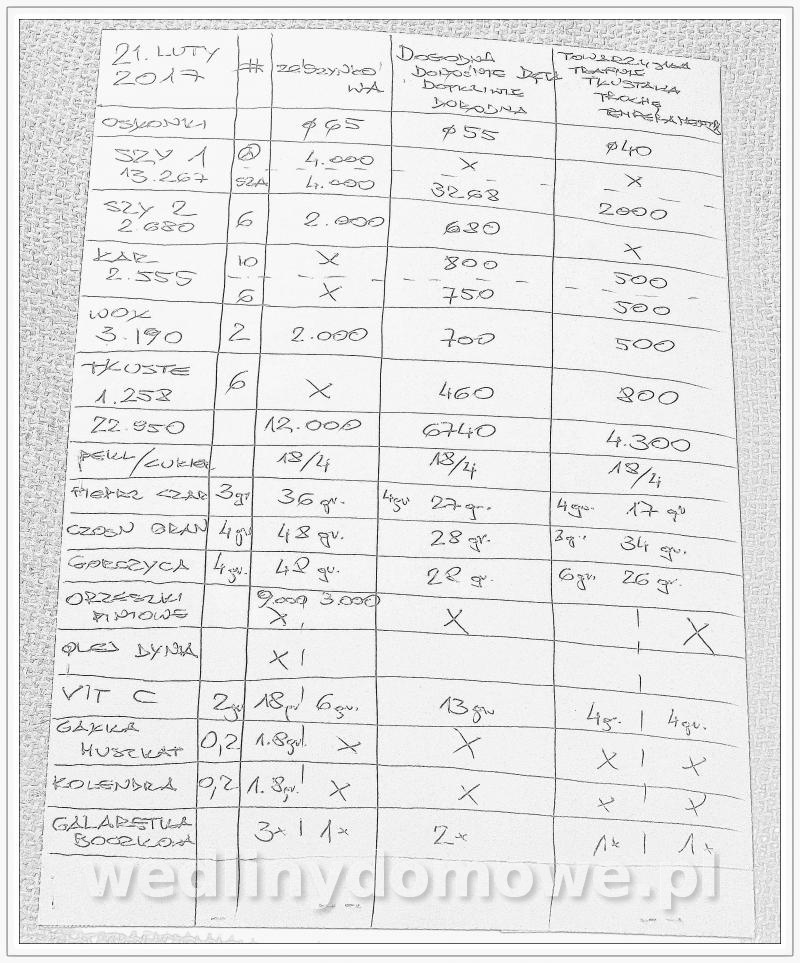 21. LUTY # ZABYTKO DOGODNA TOWARZYSKA
2017 WA DOTKLIWIE TRAFNIE
DORODNA TŁUSTAWA
TROCHĘ
OSŁONKI ø65 ø55 ø40
SZY 1 4.000 X X
13.267 SZA 4.000 3268 2000
SZY 2 6 2.000 680 X
2.680
KAR 10 X 800 500
2.555 6 X 750 500
WOŁ 2 2.000 700 500
3.190
TŁUSTE 6 X 460 800
1.258
22.950 12.000 6740 4.300
PEKL/CUKIER 18/4 18/4 18/4
PIEPRZ CZAR 3gr 36 gr. 4gr 27 gr. 4gr. 17 gr
CZOSN GRAN 4gr 48 gr. 28 gr. 8g. 34 gr.
GORCZYCA 4gr. 48 gr. 28 gr. 6gr. 26 gr.
ORZESZKI 9.000 3.000
PINIOWE X X X
OLEJ DYNIA X
VIT C 2gr 18gr 6gr. 13gr 4gr. 4gr.
GAŁKA
MUSZKAT 0,2 1.8gr X X X X
KOLENDRA 0,2 1.8gr. X X X X
GALARETKA 3x 1x 2x 1x 1x
BOCZKOWA
wedlinydomowe.pl